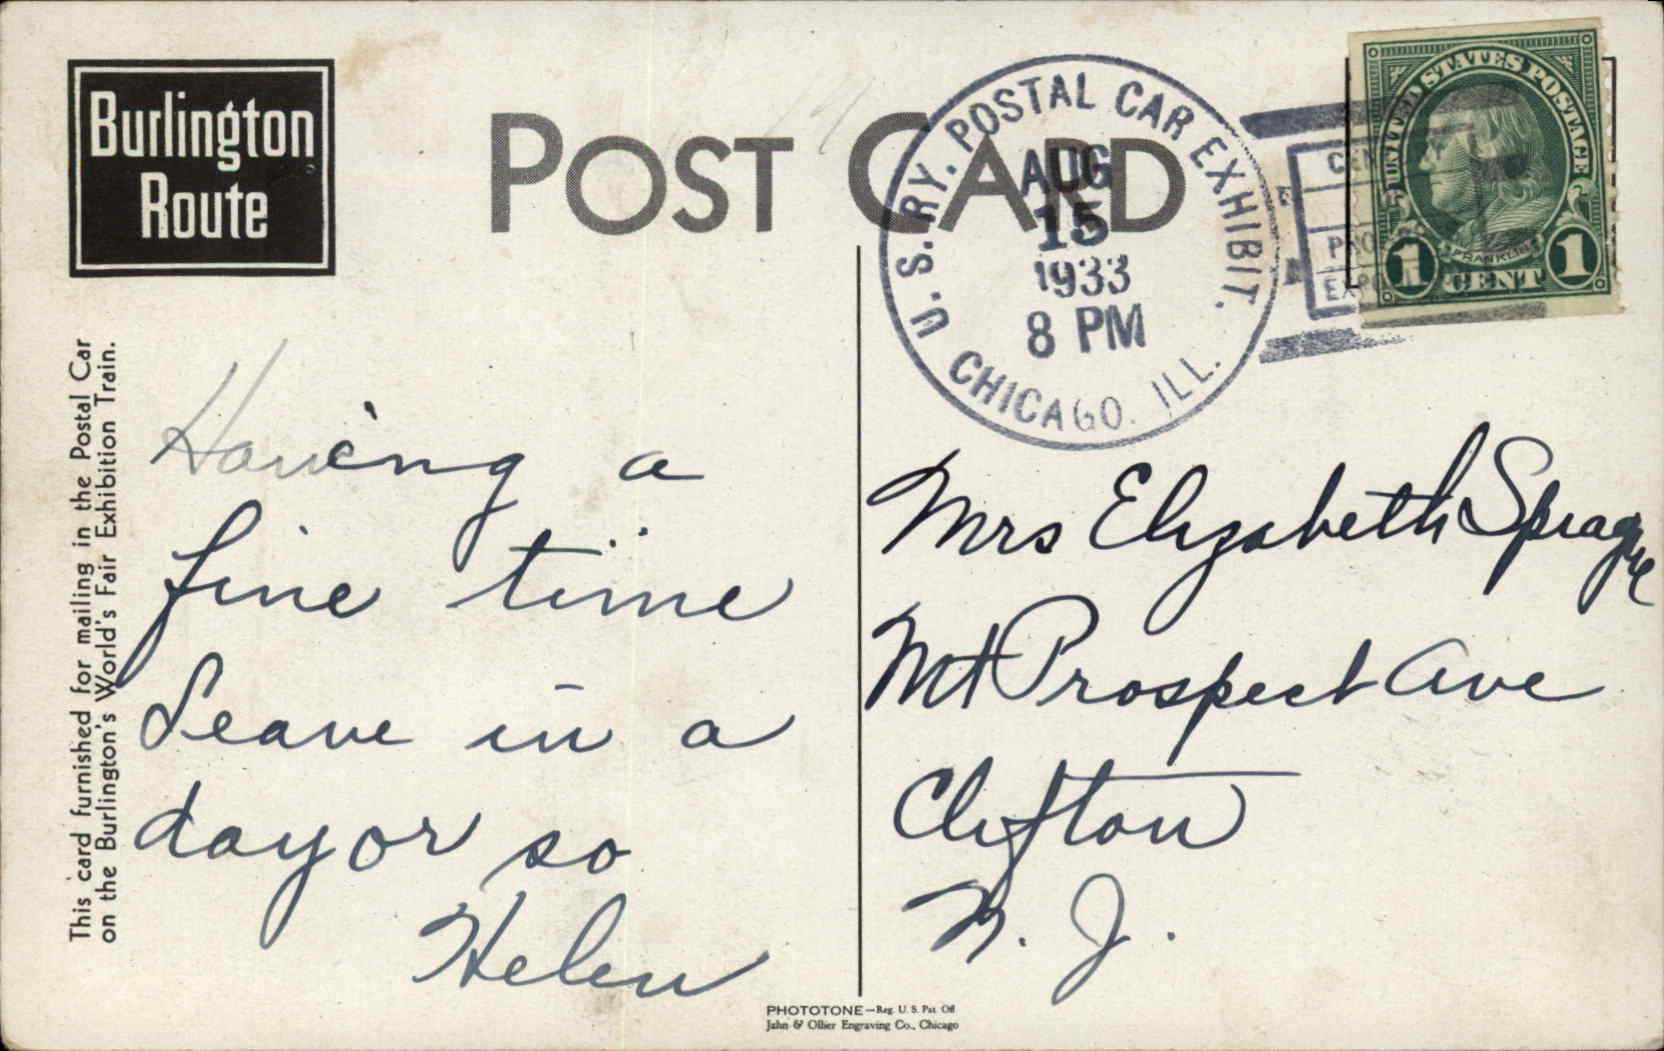 Burlington
Route
POST CARD
U.S. RY. POSTAL CAR EXHIBIT.
AUG
15
1933
8 PM
CHICAGO. ILL.
UNITED STATES POSTAGE
FRANKLIN
1 CENT 1
This card furnished for mailing in the Postal Car
on the Burlington's World's Fair Exhibition Train.
Having a
fine time
Leave in a
day or so
Helen
Mrs Elizabeth Sprague
Mt Prospect Ave
Clifton
N. J.
PHOTOTONE—Reg. U. S. Pat. Off
Jahn & Ollier Engraving Co., Chicago